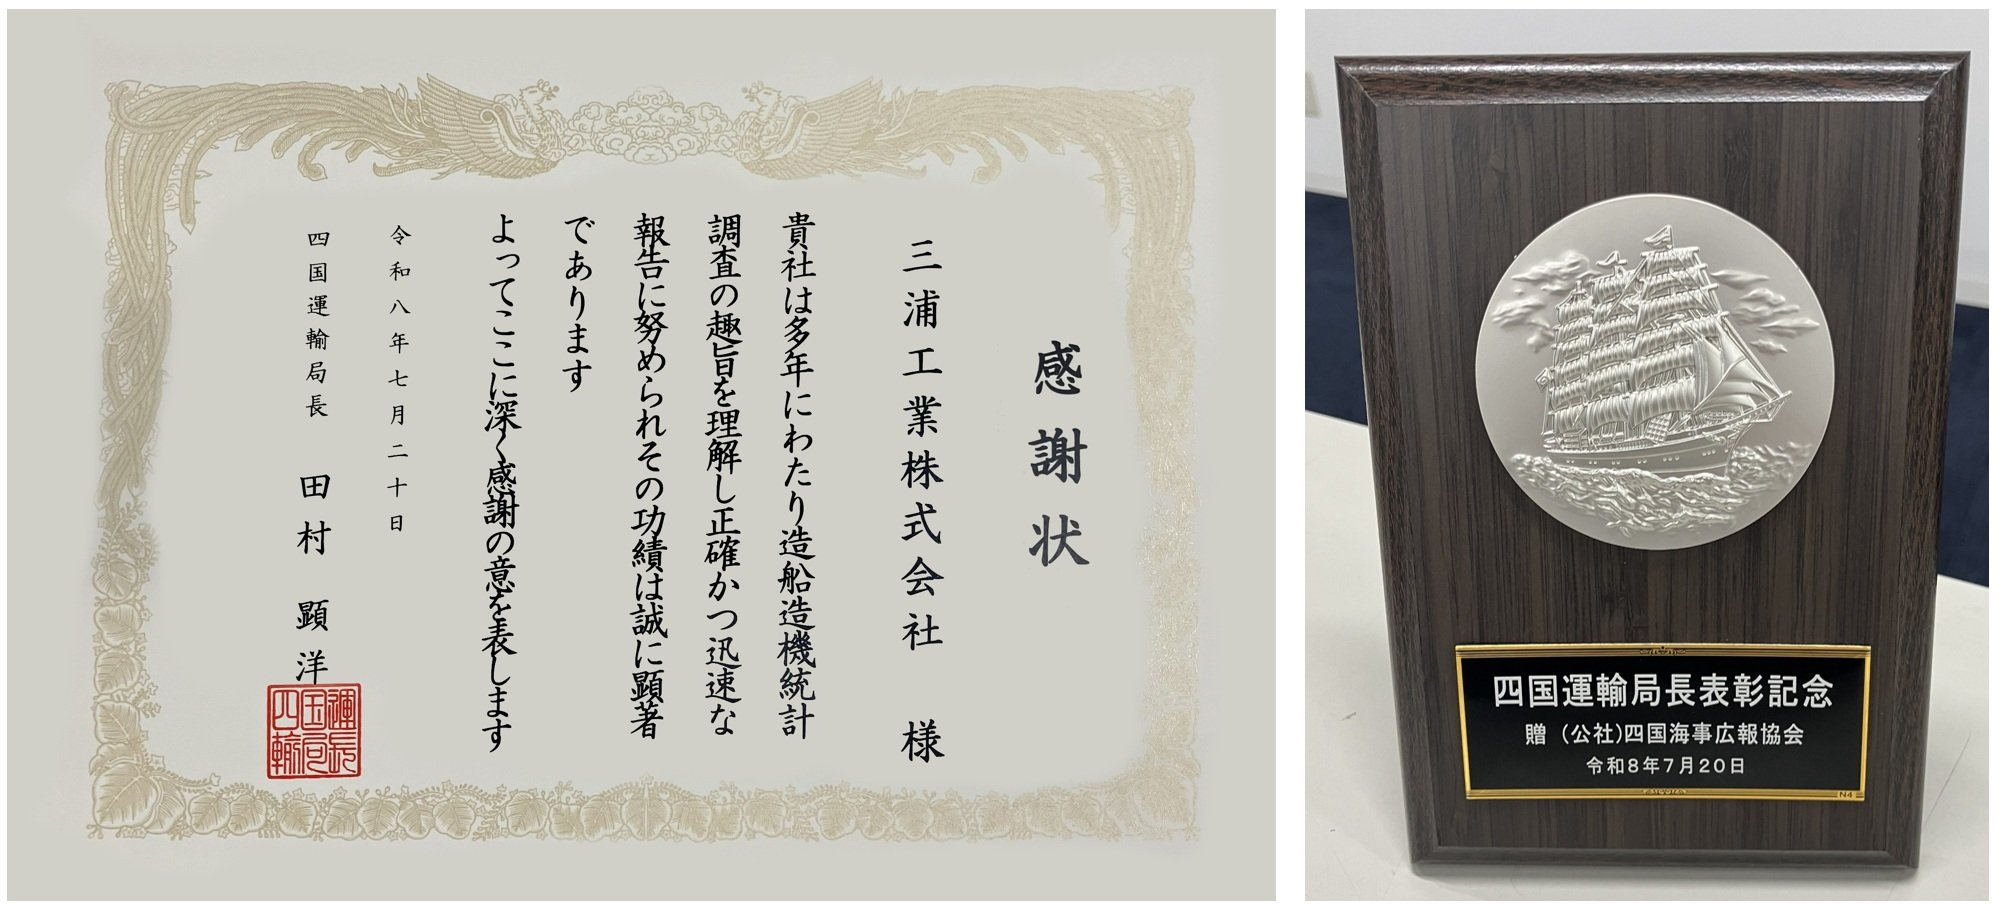 感謝状
三浦工業株式会社 様
貴社は多年にわたり造船造機統計
調査の趣旨を理解し正確かつ迅速な
報告に努められその功績は誠に顕著
であります
よってここに深く感謝の意を表します
令和八年七月二十日
四国運輸局長 田村 顕洋
運輸
四国運輸局長表彰記念
贈 (公社)四国海事広報協会
令和8年7月20日
N4